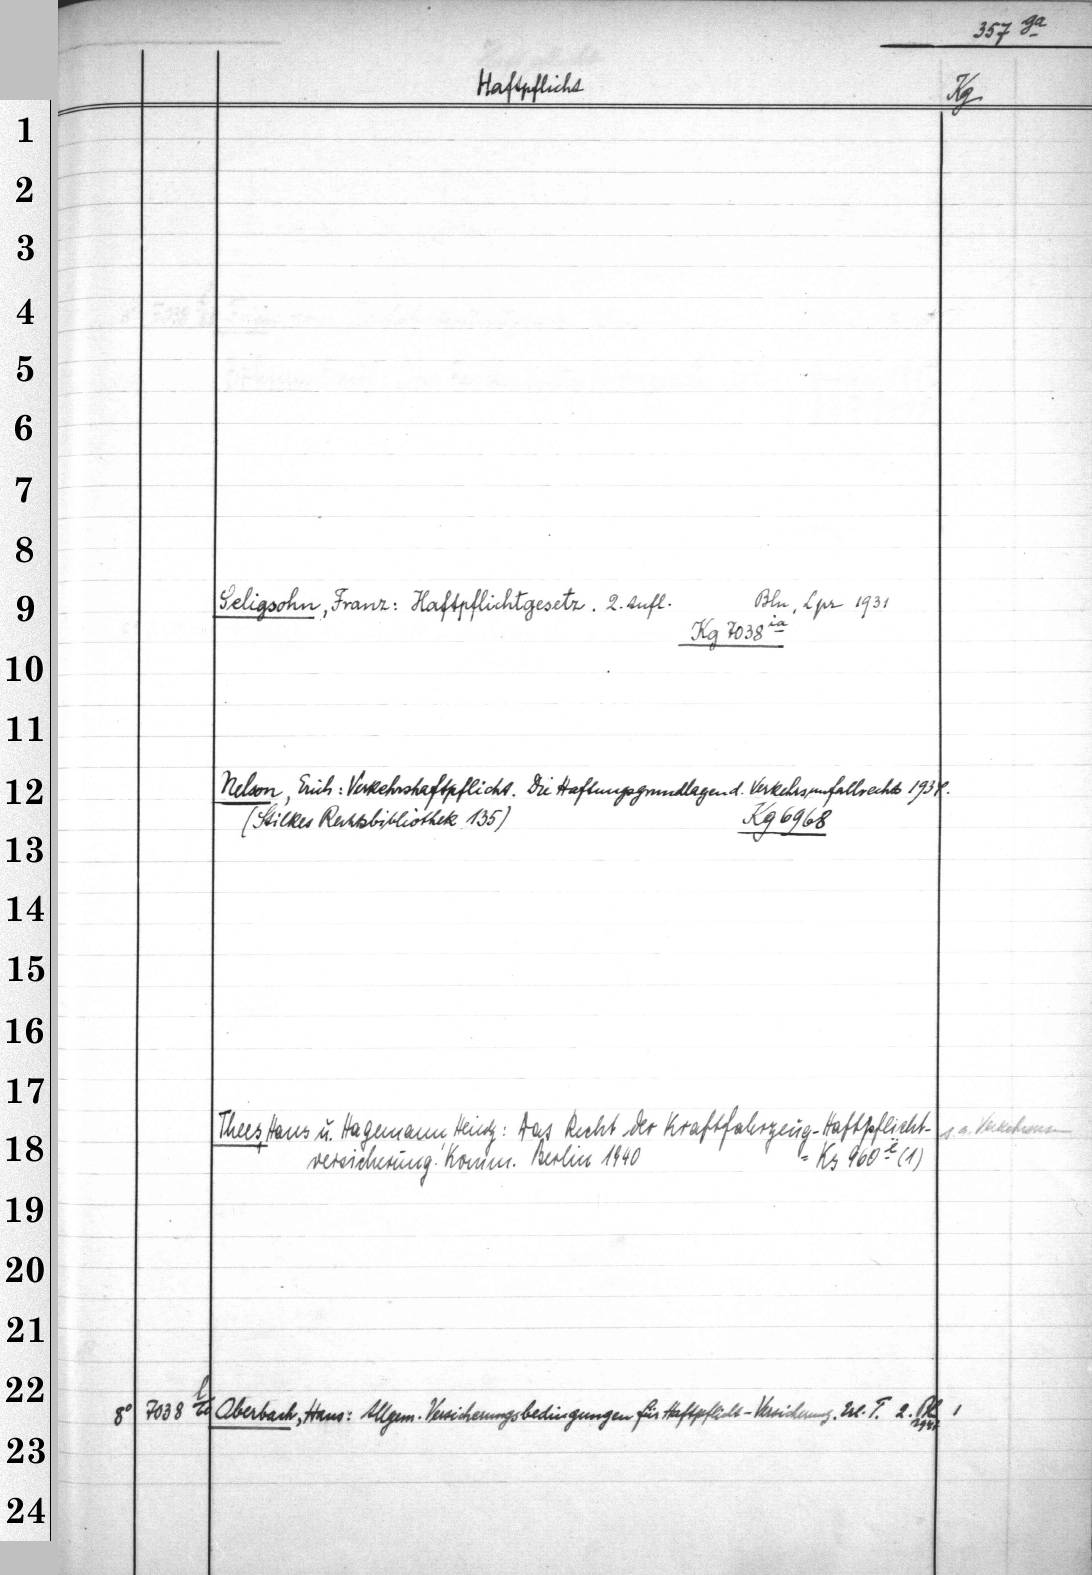 357 ga
Haftpflicht Kg
1
2
3
4
5
6
7
8
9 Seligsohn, Franz: Haftpflichtgesetz. 2. Aufl. Bln, Lpz 1931
Kg 7038 ia
10
11
12 Nelson, Erich: Verkehrshaftpflicht. Die Haftungsgrundlagen d. Verkehrsunfallrechts 1931.
(Stilkes Rechtsbibliothek 135) Kg 6968
13
14
15
16
17
18 Thees, Hans u. Hagemann, Heinz: Das Recht der Kraftfahrzeug-Haftpflicht- s. a.
versicherung. Komm. Berlin 1940 = Ks 960 (1)
19
20
21
22 8° 7038 Oberbach, Hans: Allgem. Versicherungsbedingungen für Haftpflicht-Versicherung. T. 2. 1
1947
23
24